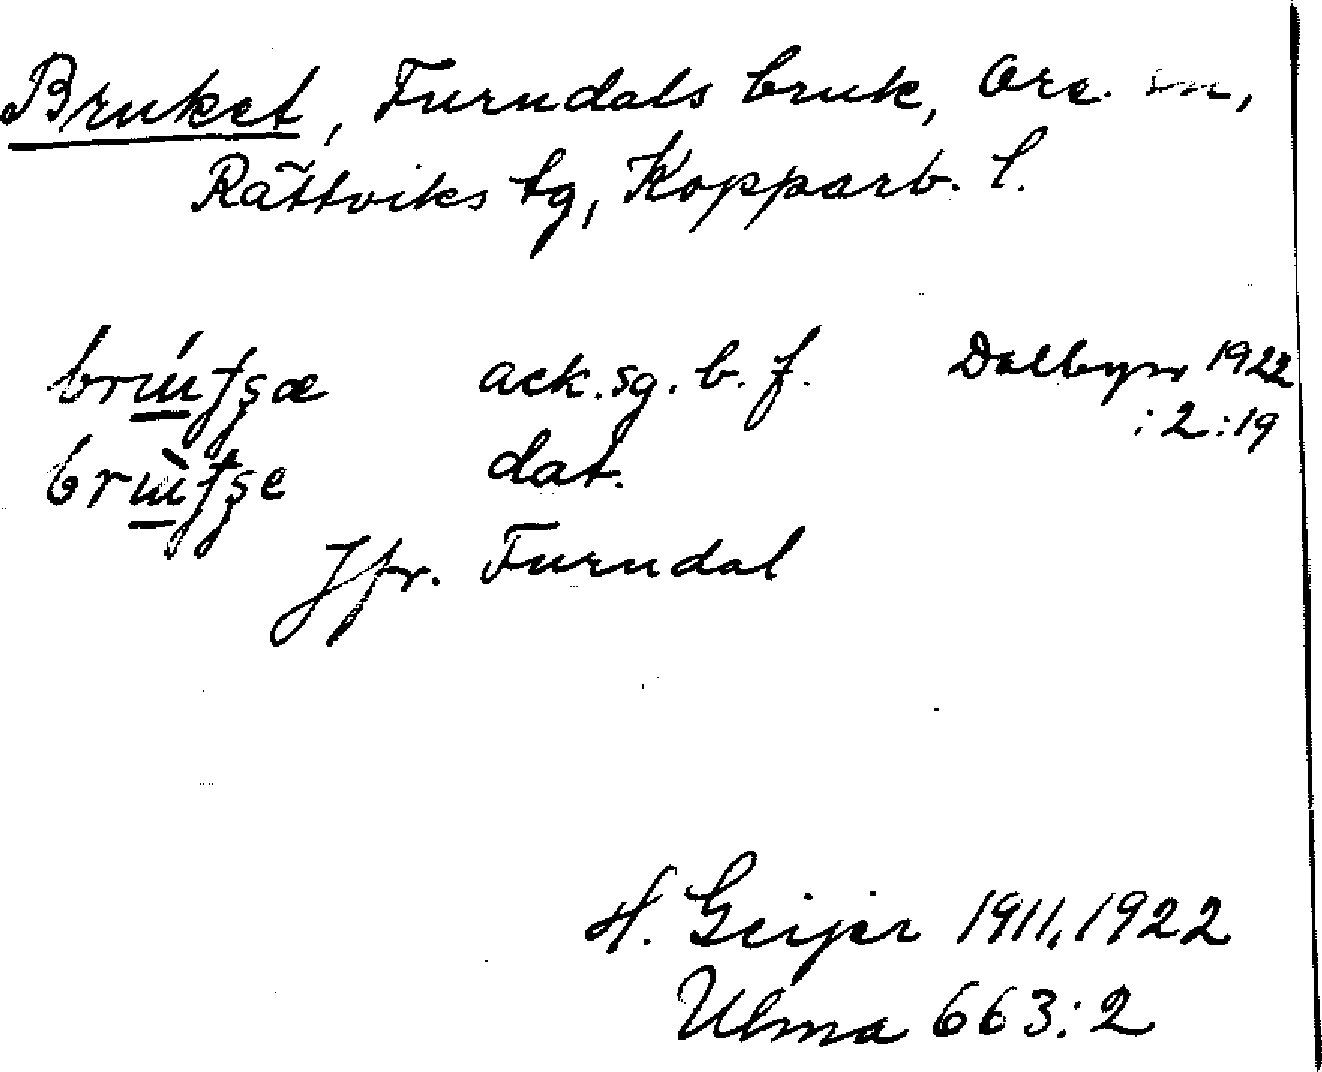 Bruket, Furudals bruk, Ore. sn,
Rättviks tg, Kopparb. l.
ack. sg. b. f. Dalbyn 1922
:2:19
dat.
Jfr. Furudal
H. Geijer 1911, 1922
Ulma 663:2